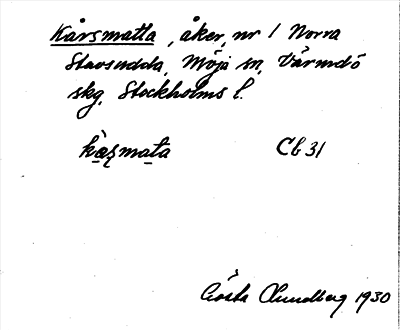 Kårsmatta, åker, nr 1 Norra
Stavsudda, Möja sn, Värmdö
skg, Stockholms l.
Cb 31
Gösta Lundberg 1930